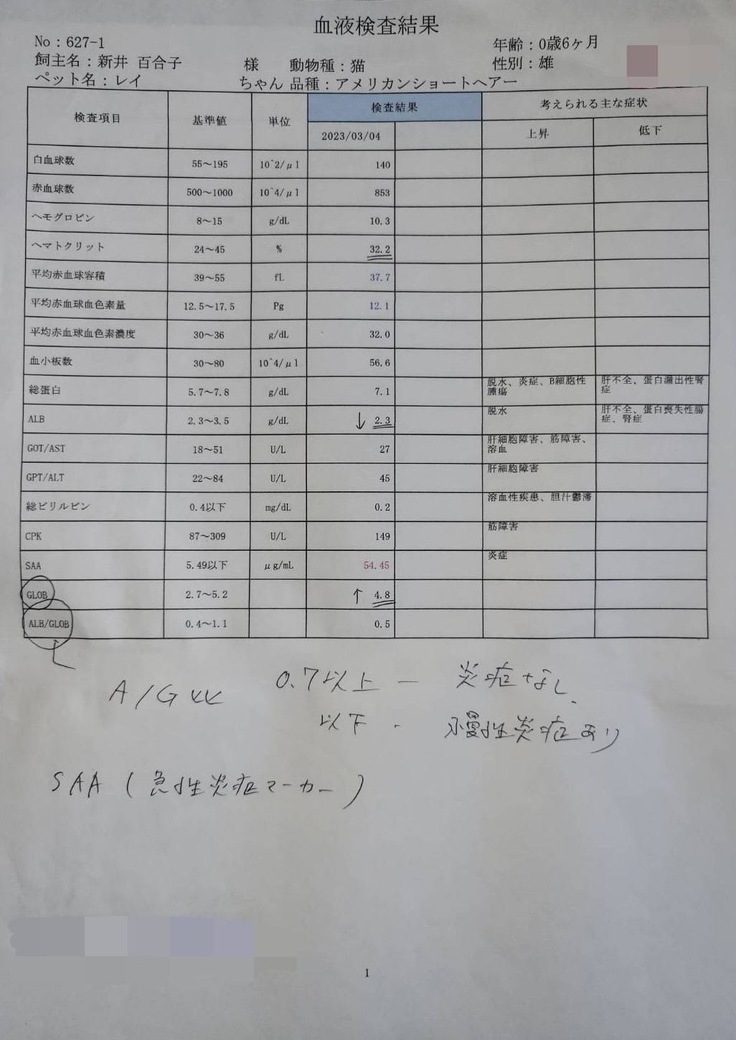 血液検査結果
No：627-1
年齢：0歳6ヶ月
飼主名：新井 百合子 様 動物種：猫 性別：雄
ペット名：レイ ちゃん 品種：アメリカンショートヘアー
検査項目 基準値 単位 検査結果 考えられる主な症状
2023/03/04 上昇 低下
白血球数 55～195 10^2/μl 140
赤血球数 500～1000 10^4/μl 853
ヘモグロビン 8～15 g/dL 10.3
ヘマトクリット 24～45 % 32.2
平均赤血球容積 39～55 fL 37.7
平均赤血球血色素量 12.5～17.5 Pg 12.1
平均赤血球血色素濃度 30～36 g/dL 32.0
血小板数 30～80 10^4/μl 56.6
総蛋白 5.7～7.8 g/dL 7.1 脱水、炎症、B細胞性腫瘍 肝不全、蛋白漏出性腎症
ALB 2.3～3.5 g/dL ↓ 2.3 脱水 肝不全、蛋白喪失性腸症、腎症
GOT/AST 18～51 U/L 27 肝細胞障害、筋障害、溶血
GPT/ALT 22～84 U/L 45 肝細胞障害
総ビリルビン 0.4以下 mg/dL 0.2 溶血性疾患、胆汁鬱滞
CPK 87～309 U/L 149 筋障害
SAA 5.49以下 μg/mL 54.45 炎症
GLOB 2.7～5.2 ↑ 4.8
ALB/GLOB 0.4～1.1 0.5
A/G 0.7以上 — 炎症なし
以下 - 慢性炎症あり
SAA (急性炎症マーカー)
1